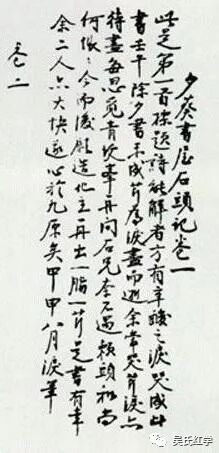 夕葵書屋石頭記卷一
此是第一首標題詩能解者方有辛酸之淚哭成此
書壬午除夕書未成芹為淚盡而逝余常哭芹淚亦
待盡每思覓青埂峯再問石兄奈不遇賴頭和尚
何悵悵今而後願造化主再出一脂一芹是書有幸
余二人亦大快遂心於九原矣甲申八月淚筆
卷二
吴氏红学